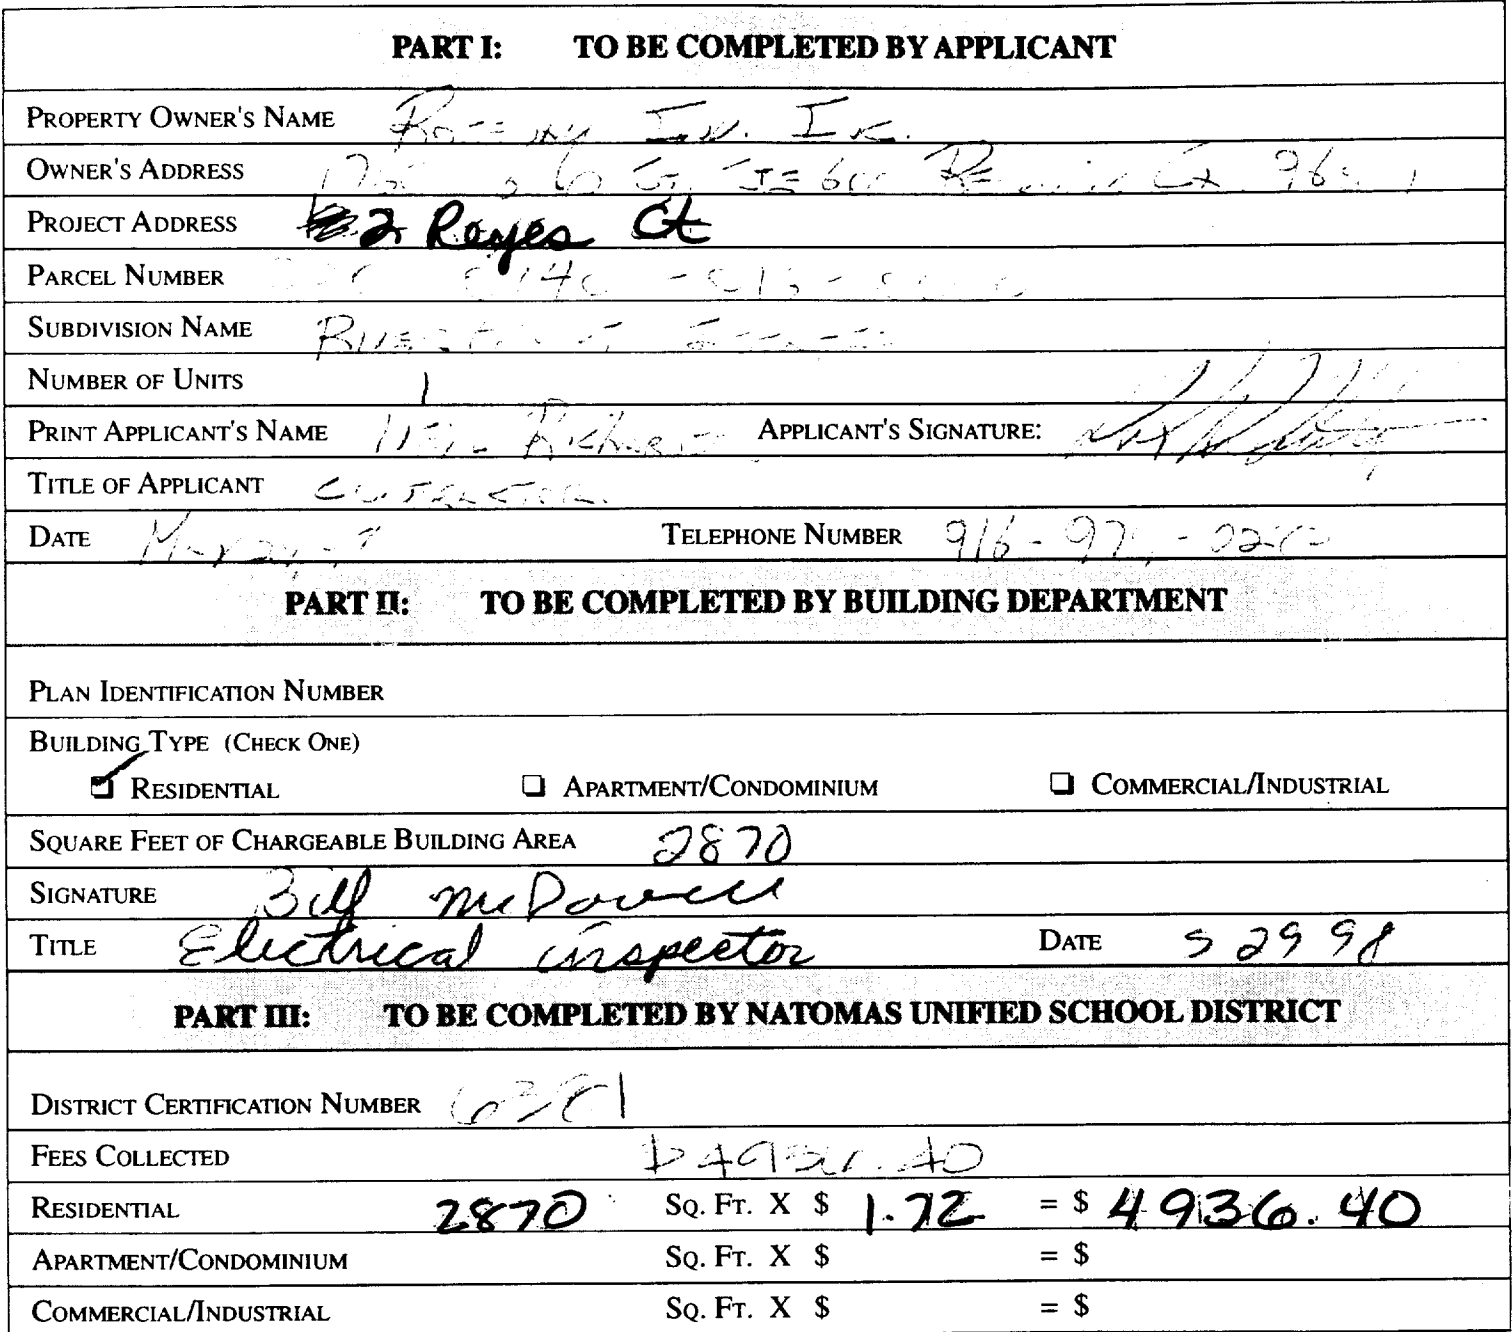 PART I: TO BE COMPLETED BY APPLICANT
PROPERTY OWNER'S NAME Inc.
OWNER'S ADDRESS
PROJECT ADDRESS 2 Reyes Ct
PARCEL NUMBER
SUBDIVISION NAME
NUMBER OF UNITS 1
PRINT APPLICANT'S NAME APPLICANT'S SIGNATURE:
TITLE OF APPLICANT CONTRACTOR
DATE TELEPHONE NUMBER 916-
PART II: TO BE COMPLETED BY BUILDING DEPARTMENT
PLAN IDENTIFICATION NUMBER
BUILDING TYPE (CHECK ONE)
RESIDENTIAL APARTMENT/CONDOMINIUM COMMERCIAL/INDUSTRIAL
SQUARE FEET OF CHARGEABLE BUILDING AREA 2870
SIGNATURE Bill McDowell
TITLE Electrical inspector DATE 5 29 98
PART III: TO BE COMPLETED BY NATOMAS UNIFIED SCHOOL DISTRICT
DISTRICT CERTIFICATION NUMBER
FEES COLLECTED $4936.40
RESIDENTIAL 2870 SQ. FT. X $ 1.72 = $ 4936.40
APARTMENT/CONDOMINIUM SQ. FT. X $ = $
COMMERCIAL/INDUSTRIAL SQ. FT. X $ = $